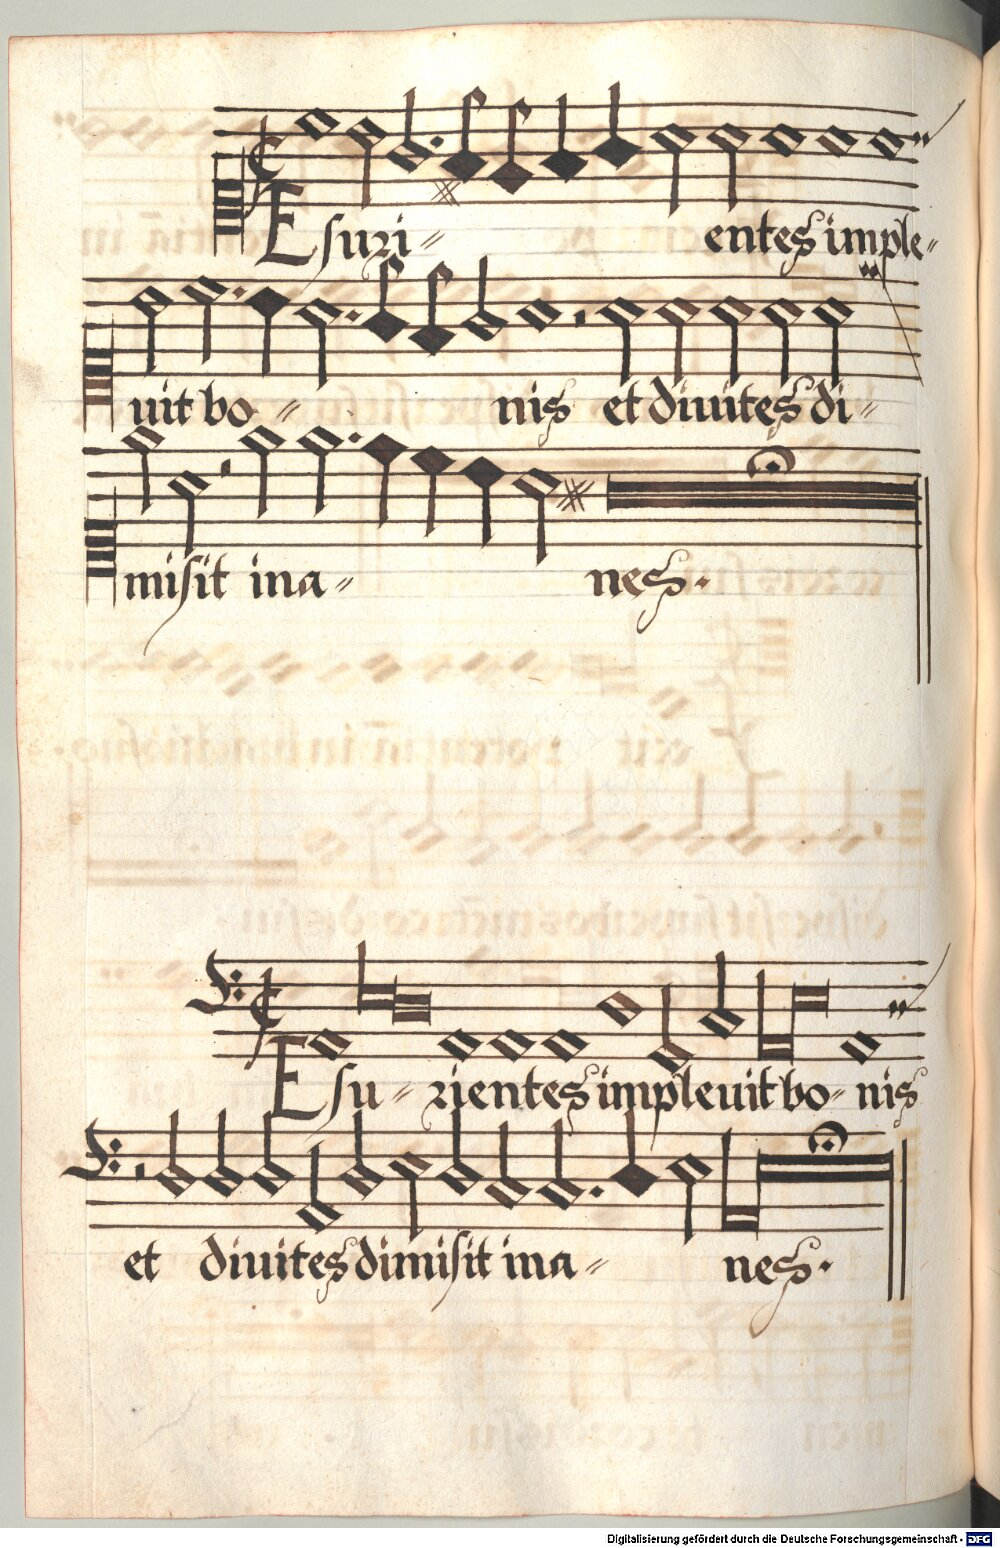 Esuri= entes imple=
uit bo= nis et diuites di=
misit ina= nes.
Esu= rientes impleuit bo= nis
et diuites dimisit ina= nes.
Digitalisierung gefördert durch die Deutsche Forschungsgemeinschaft - DFG